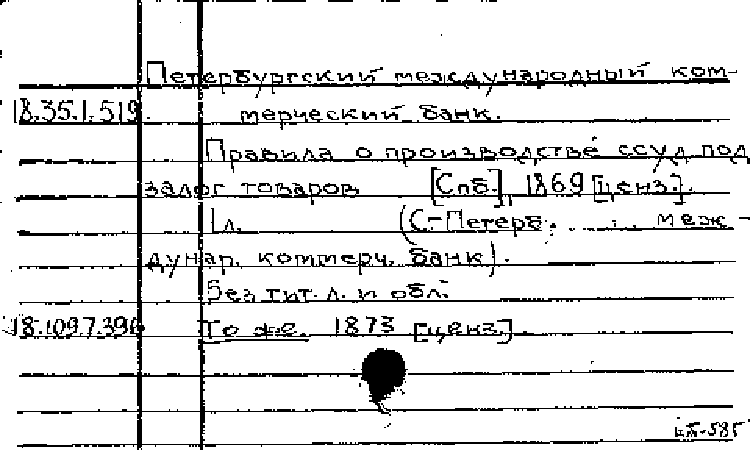 Петербургский международный ком-
18.35.1.519. мерческий банк.
Правила о производстве ссуд под
залог товаров [Спб.], 1869 [ценз.].
1 л. (С-Петерб. . . . меж-
дунар. коммерч. банк).
Без тит. л. и обл.
18.109.7.396 То же. 1873 [ценз.].